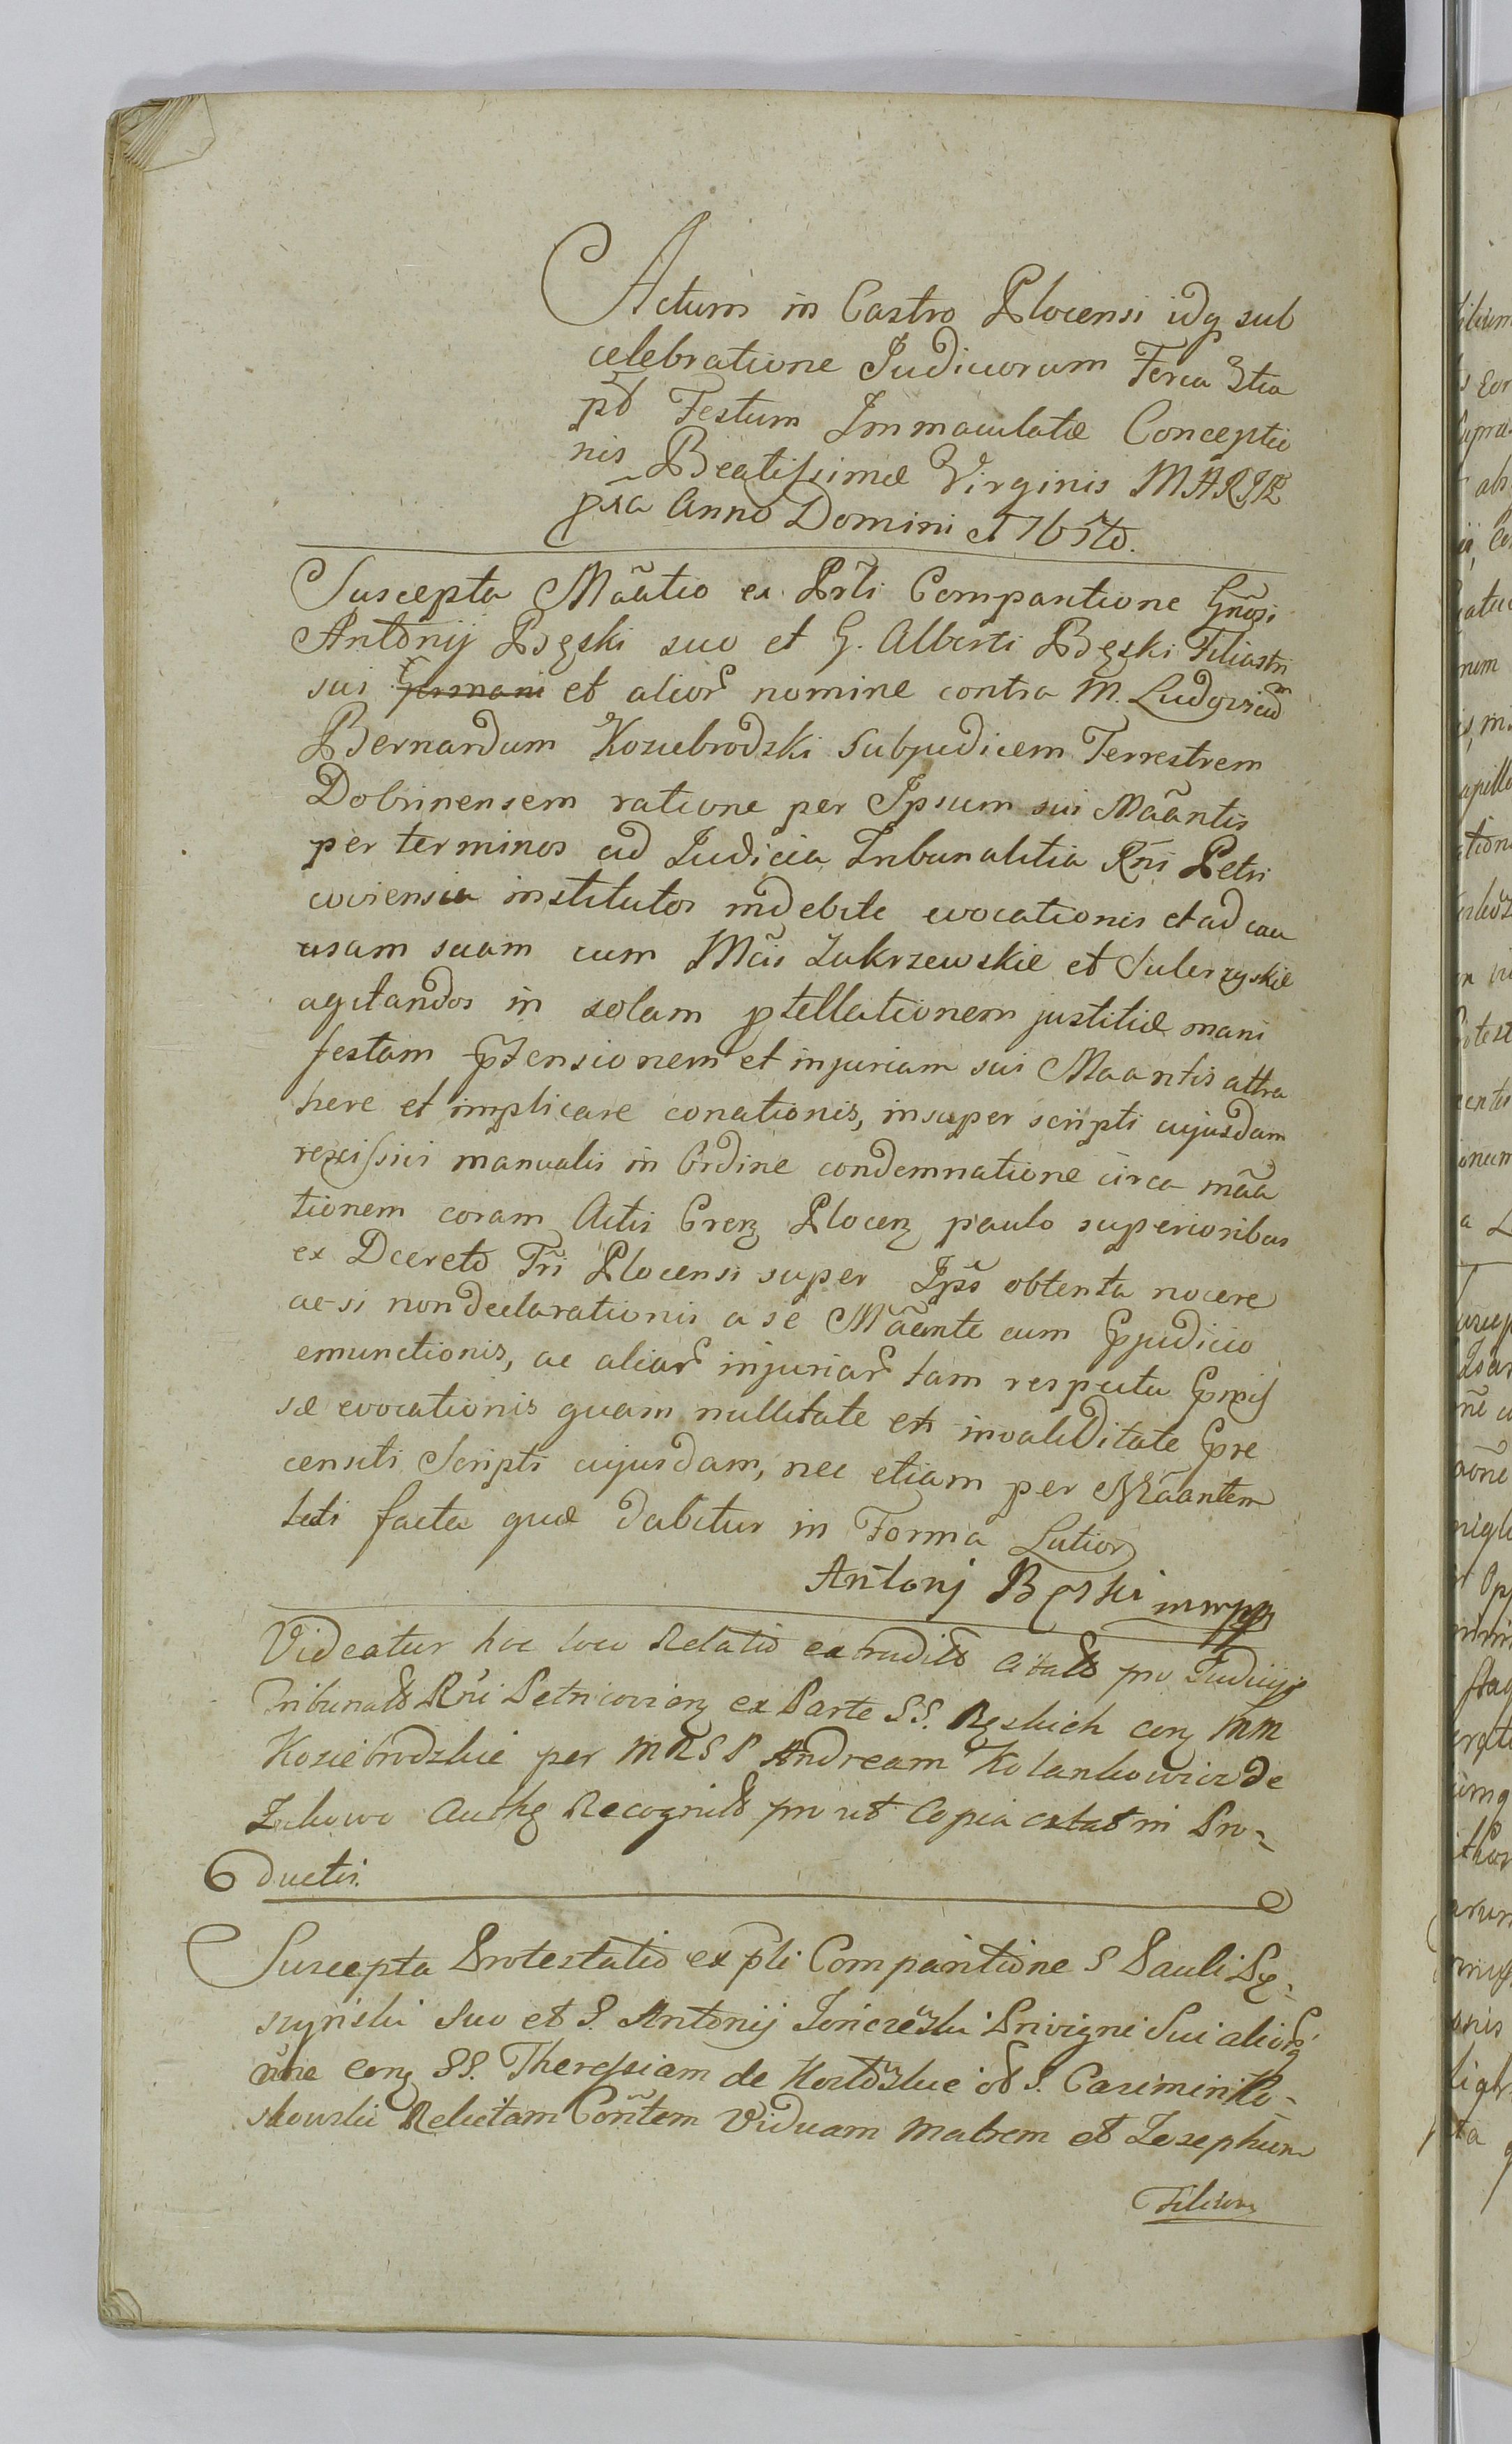 Actum in Castro Plocensi idq sub
celebratione Judiciorum Feria 3tia
pt Festum Immaculatæ Conceptio
nis Beatissimæ Virginis MARIÆ
pxa Anno Domini 1765to.
Suscepta Mãatio ex Prli Comparitione Gnosi
Antonij Bęski suo et G. Alberti Bęski Filiastri
sui Germani et alior nomine contra M. Ludovicum
Bernardum Koziebrodzki Subjudicem Terrestrem
Dobrinensem ratione per Ipsum sui Mãantis
per terminos ad Judicia Tribunalitia Rni Petri
coviensia institutos indebite evocationis et ad cau
usam suam cum Mcis Zakrzewskie et Sulerzyskie
agitandos in solam ptellationem justitiæ mani
festam ptensionem et injuriam sui Maantis attra
here et implicare conationis, insuper scripti cujusdam
rexissivi manualis in Ordine condemnatione circa mãa
tionem coram Actis Crenz Plocenz paulo superioribus
ex Dcereto Tri Plocensi super Ipso obtenta nocere
ac si non declarationis a se Mãante cum Pjudicio
emunctionis, ac aliar injuriar tam respectu Pmis
sæ evocationis quam nullitate et invaliditate Pre
censiti Scripti cujusdam, nec etiam per Mãantem
facta quæ dabitur in Forma Latiori
Antonj Bęski mmpp
Videatur hoc loco Relatio extradits Citats pro Judicijs
Tribunals Rni Petricovienz ex Parte SS. Bęskich conz MM
Koziebrodzkie per MRSP Andream Kolankowicz de
Zukowo Recognits prout Copia extat in Pro-
ductis.
Suscepta Protestatio ex pli Comparitione S Pauli
suo et S. Antonij Privigni Sui alior
nne conz SS. Theressiam de od S. Casimiri Ro-
skowski Relictam Viduam Matrem et Josephum
Filium